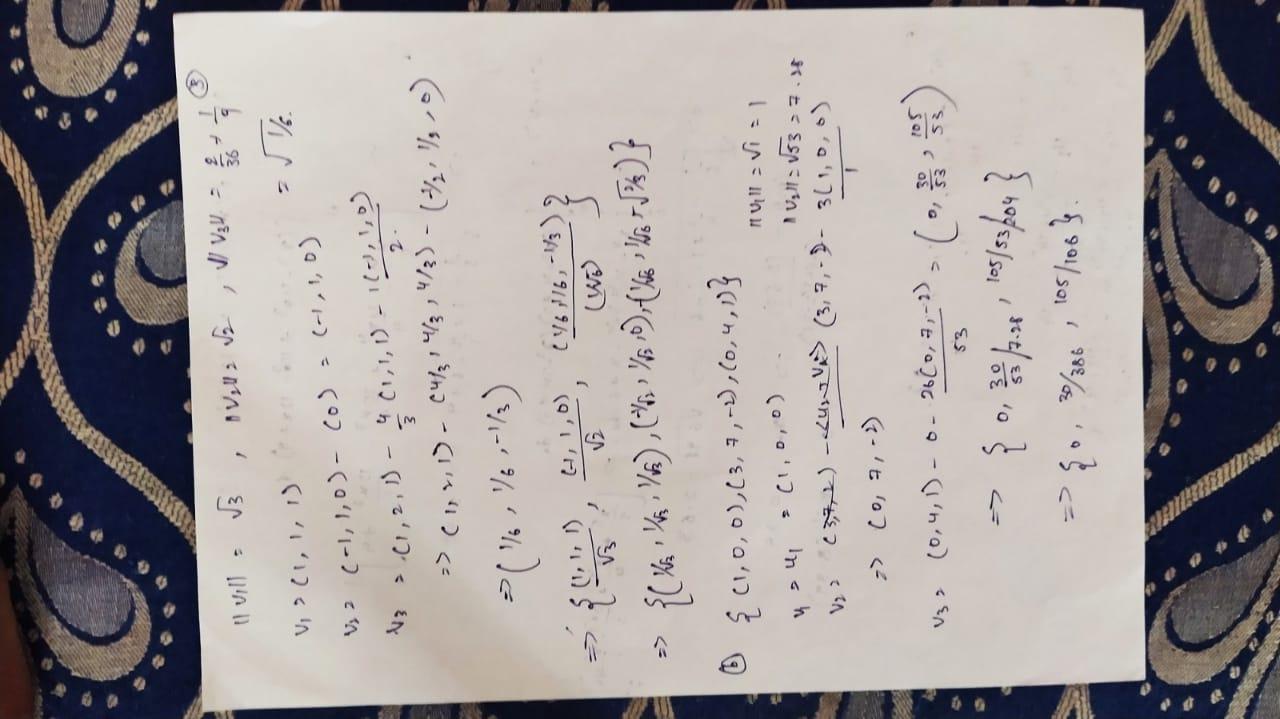 ③
||v₁|| = √3 , ||v₂|| = √2 , ||v₃|| = 2/36 + 1/9
= √1/6
v₁ = (1, 1, 1)
v₂ = (-1, 1, 0) - (0) = (-1, 1, 0)
v₃ = (1, 2, 1) - 4/3 (1, 1, 1) - 1(-1, 1, 0)/2
=> (1, 2, 1) - (4/3, 4/3, 4/3) - (-1/2, 1/2, 0)
=> (1/6, 1/6, -1/3)
=> { (1, 1, 1)/√3 , (-1, 1, 0)/√2 , (1/6, 1/6, -1/3)/(1/√6) }
=> {(1/√3, 1/√3, 1/√3), (-1/√2, 1/√2, 0), (1/√6, 1/√6, -√2/3)}
(b) { (1, 0, 0), (3, 7, -2), (0, 4, 1)}
v₁ = u₁ = (1, 0, 0) ||v₁|| = √1 = 1
||v₂|| = √53 = 7.28
v₂ = (3, 7, -2) - 3(1, 0, 0)/1
=> (0, 7, -2)
v₃ = (0, 4, 1) - 0 - 26(0, 7, -2)/53 = (0, 30/53, 105/53)
=> { 0, 30/53/7.28, 105/53/204 }
=> { 0, 30/386, 105/106 }.